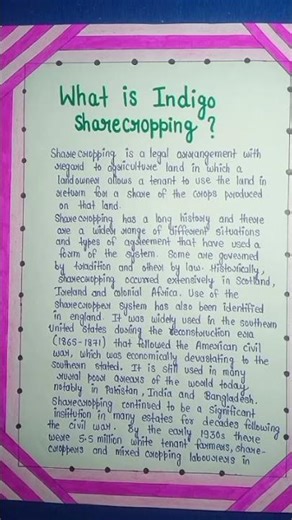 What is Indigo
Sharecropping ?
Sharecropping is a legal arrangement with
regard to agriculture land in which a
landowner allows a tenant to use the land in
return for a share of the crops produced
on that land.
Sharecropping has a long history and there
are a wider range of different situations
and types of agreement that have used a
form of the system. Some are governed
by tradition and others by law. Historically,
sharecropping occurred extensively in Scotland,
Ireland and colonial Africa. Use of the
sharecropper system has also been identified
in england. It was widely used in the southern
United States during the reconstruction era
(1865-1871) that followed the American civil
war, which was economically devastating to the
southern stated. It is still used in many
rural poor areas of the world today
notably in Pakistan, India and Bangladesh.
Sharecropping continued to be a significant
institution in many estates for decades following
the civil war. By the early 1930s there
were 5.5 million white tenant farmers, share-
croppers and mixed cropping labourers in